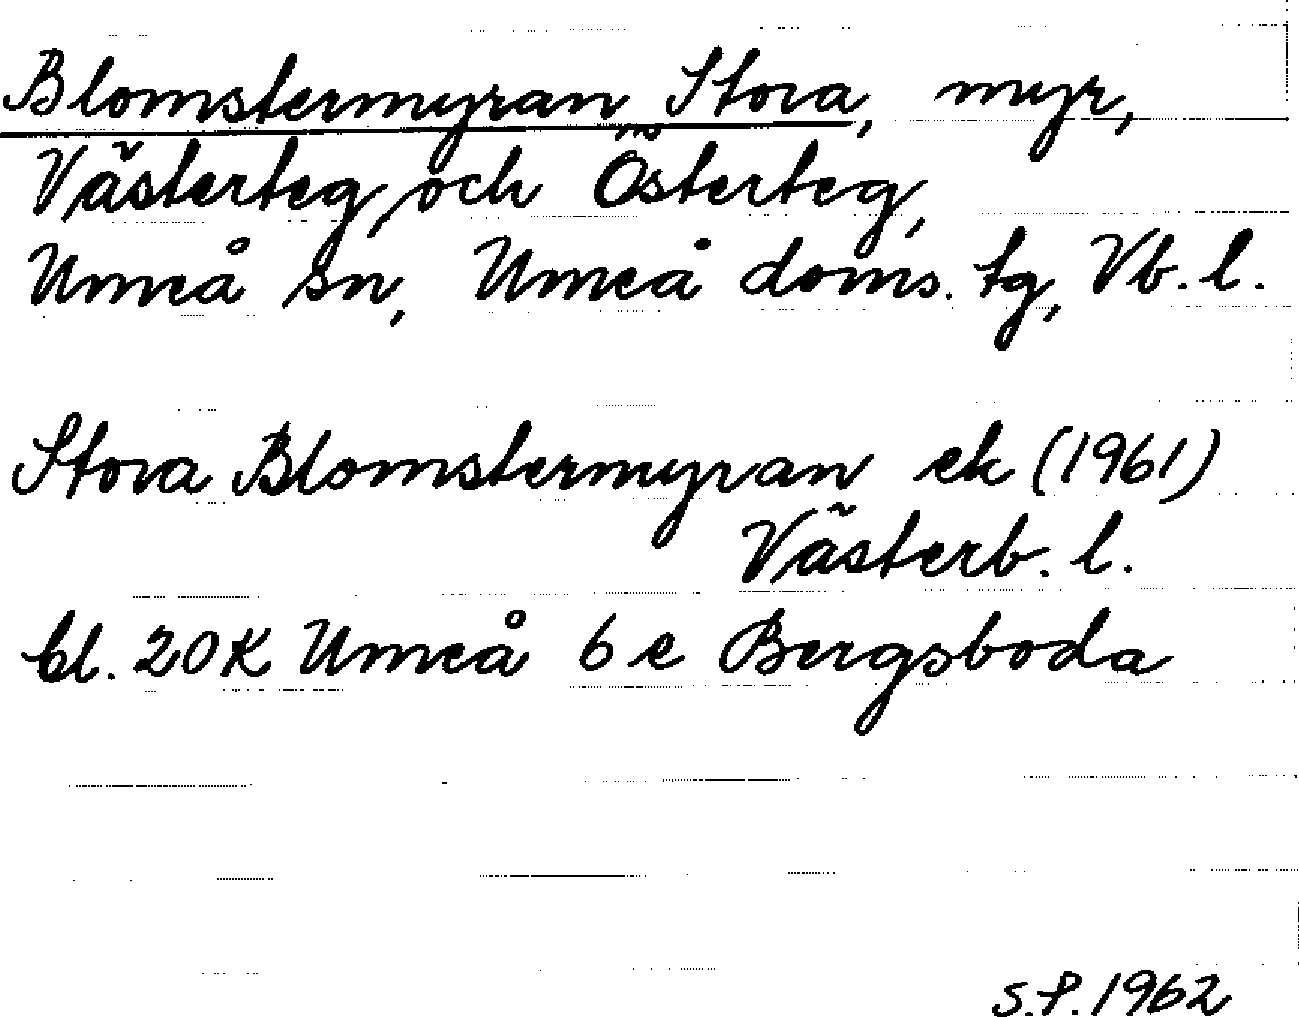 Blomstermyran Stora, myr,
Västerteg, och Österteg,
Umeå sn, Umeå doms. tg, Vb. l.
Stora Blomstermyran ek (1961)
Västerb. l.
bl. 20 K Umeå 6 e Bergsboda
S.P. 1962